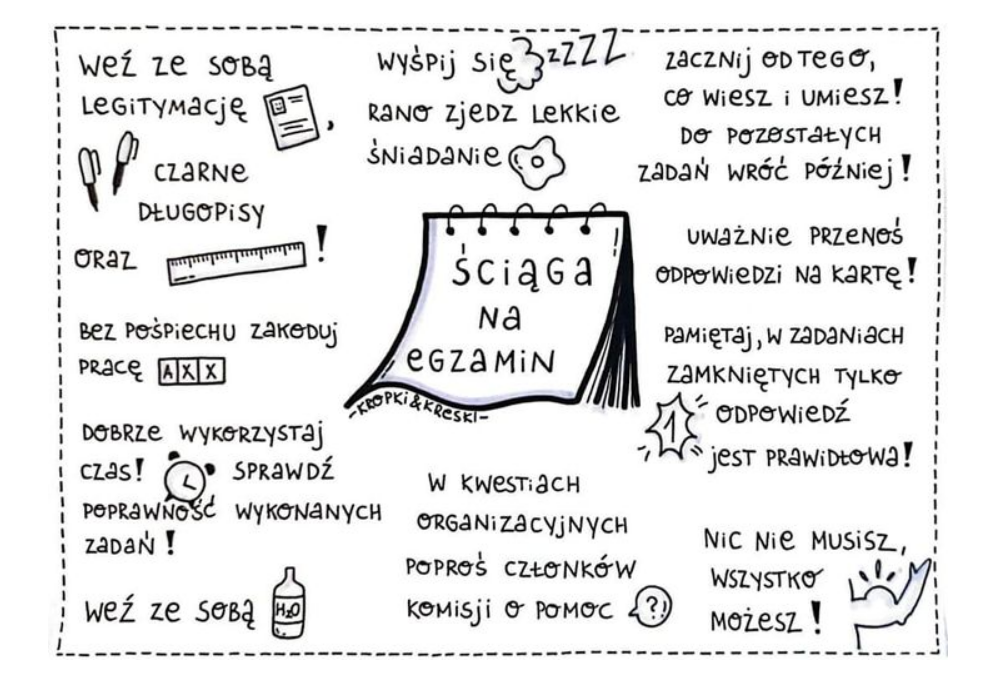 Weź ze sobą
legitymację ,
czarne
długopisy
oraz !
Bez pośpiechu zakoduj
pracę A X X
Dobrze wykorzystaj
czas! Sprawdź
poprawność wykonanych
zadań!
Weź ze sobą H₂O
Wyśpij się zzZZZ
Rano zjedz lekkie
śniadanie
Ściąga
na
egzamin
-KROPKI&KRESKI-
W kwestiach
organizacyjnych
poproś członków
komisji o pomoc ?
Zacznij od tego,
co wiesz i umiesz!
Do pozostałych
zadań wróć później!
Uważnie przenoś
odpowiedzi na kartę!
Pamiętaj, w zadaniach
zamkniętych tylko
1 odpowiedź
jest prawidłowa!
Nic nie musisz,
wszystko
możesz!